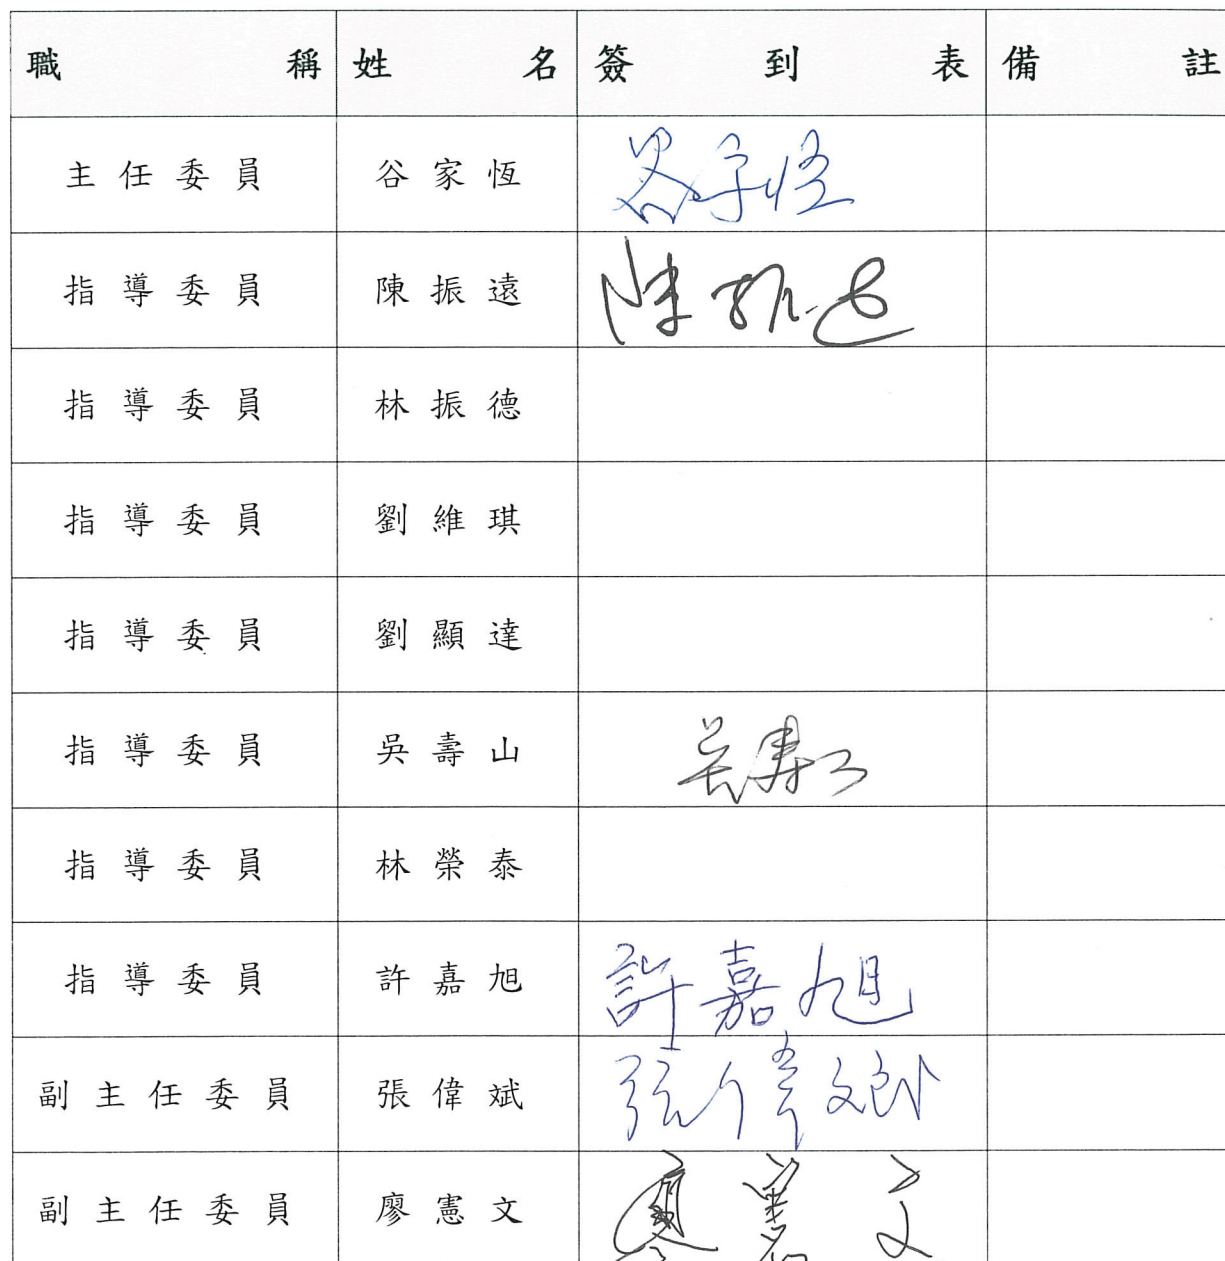 職稱 姓名 簽到表 備註
主任委員 谷家恆 谷家恆
指導委員 陳振遠 陳振遠
指導委員 林振德
指導委員 劉維琪
指導委員 劉顯達
指導委員 吳壽山 吳壽山
指導委員 林榮泰
指導委員 許嘉旭 許嘉旭
副主任委員 張偉斌 張偉斌
副主任委員 廖憲文 廖憲文